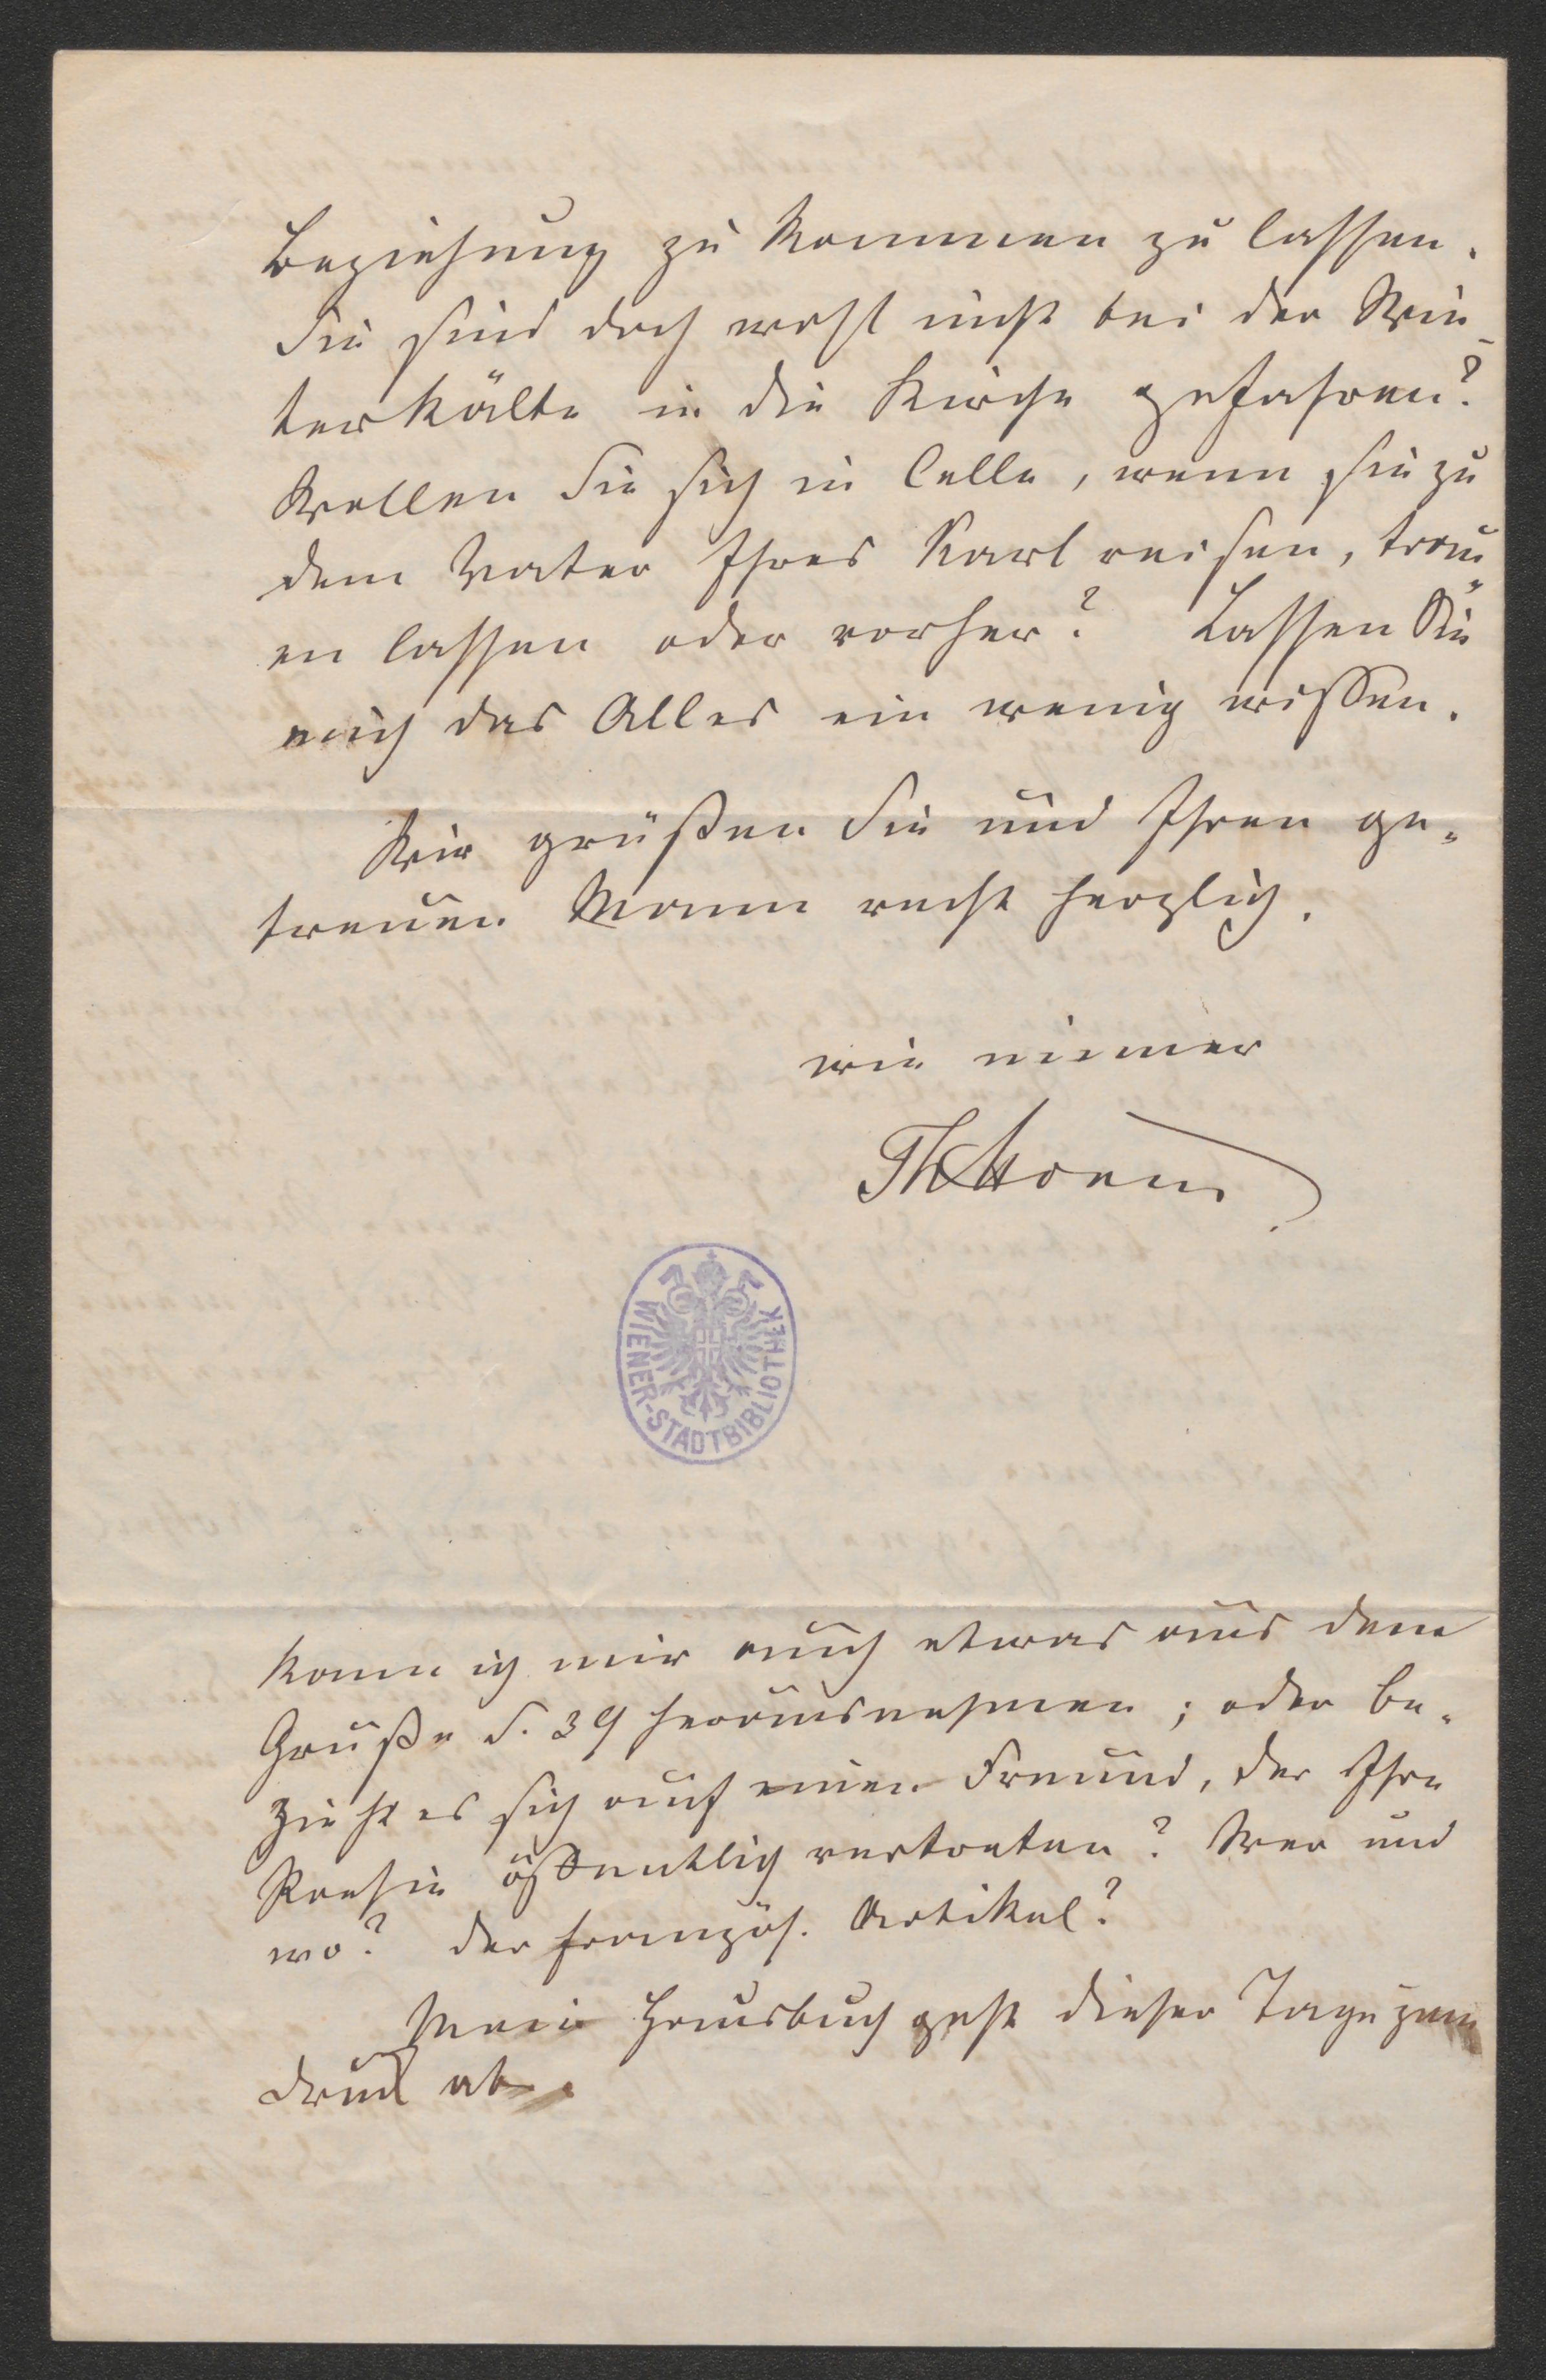 Beziehung zu kommen zu lassen.
Sie sind doch wohl nicht bei der Win-
terkälte in die Kirche gefahren?
Wollen Sie sich in Celle, wenn Sie zu
dem Vater Ihres Karl reisen, trau-
en lassen oder vorher? Lassen Sie
mich das Alles ein wenig wissen.
Wir grüßen Sie und Ihren ge-
treuen Mann recht herzlich.
wie immer
ThStorm
WIENER-STADTBIBLIOTHEK
Kann ich mir auch etwas aus dem
Gruße S. 39 herausnehmen; oder be-
zieht es sich auf einen Freund, der Ihre
Poesie öffentlich vertreten? Wer und
wo? Der französ. Artikel?
Mein Hausbuch geht dieser Tage zum
Druck ab.